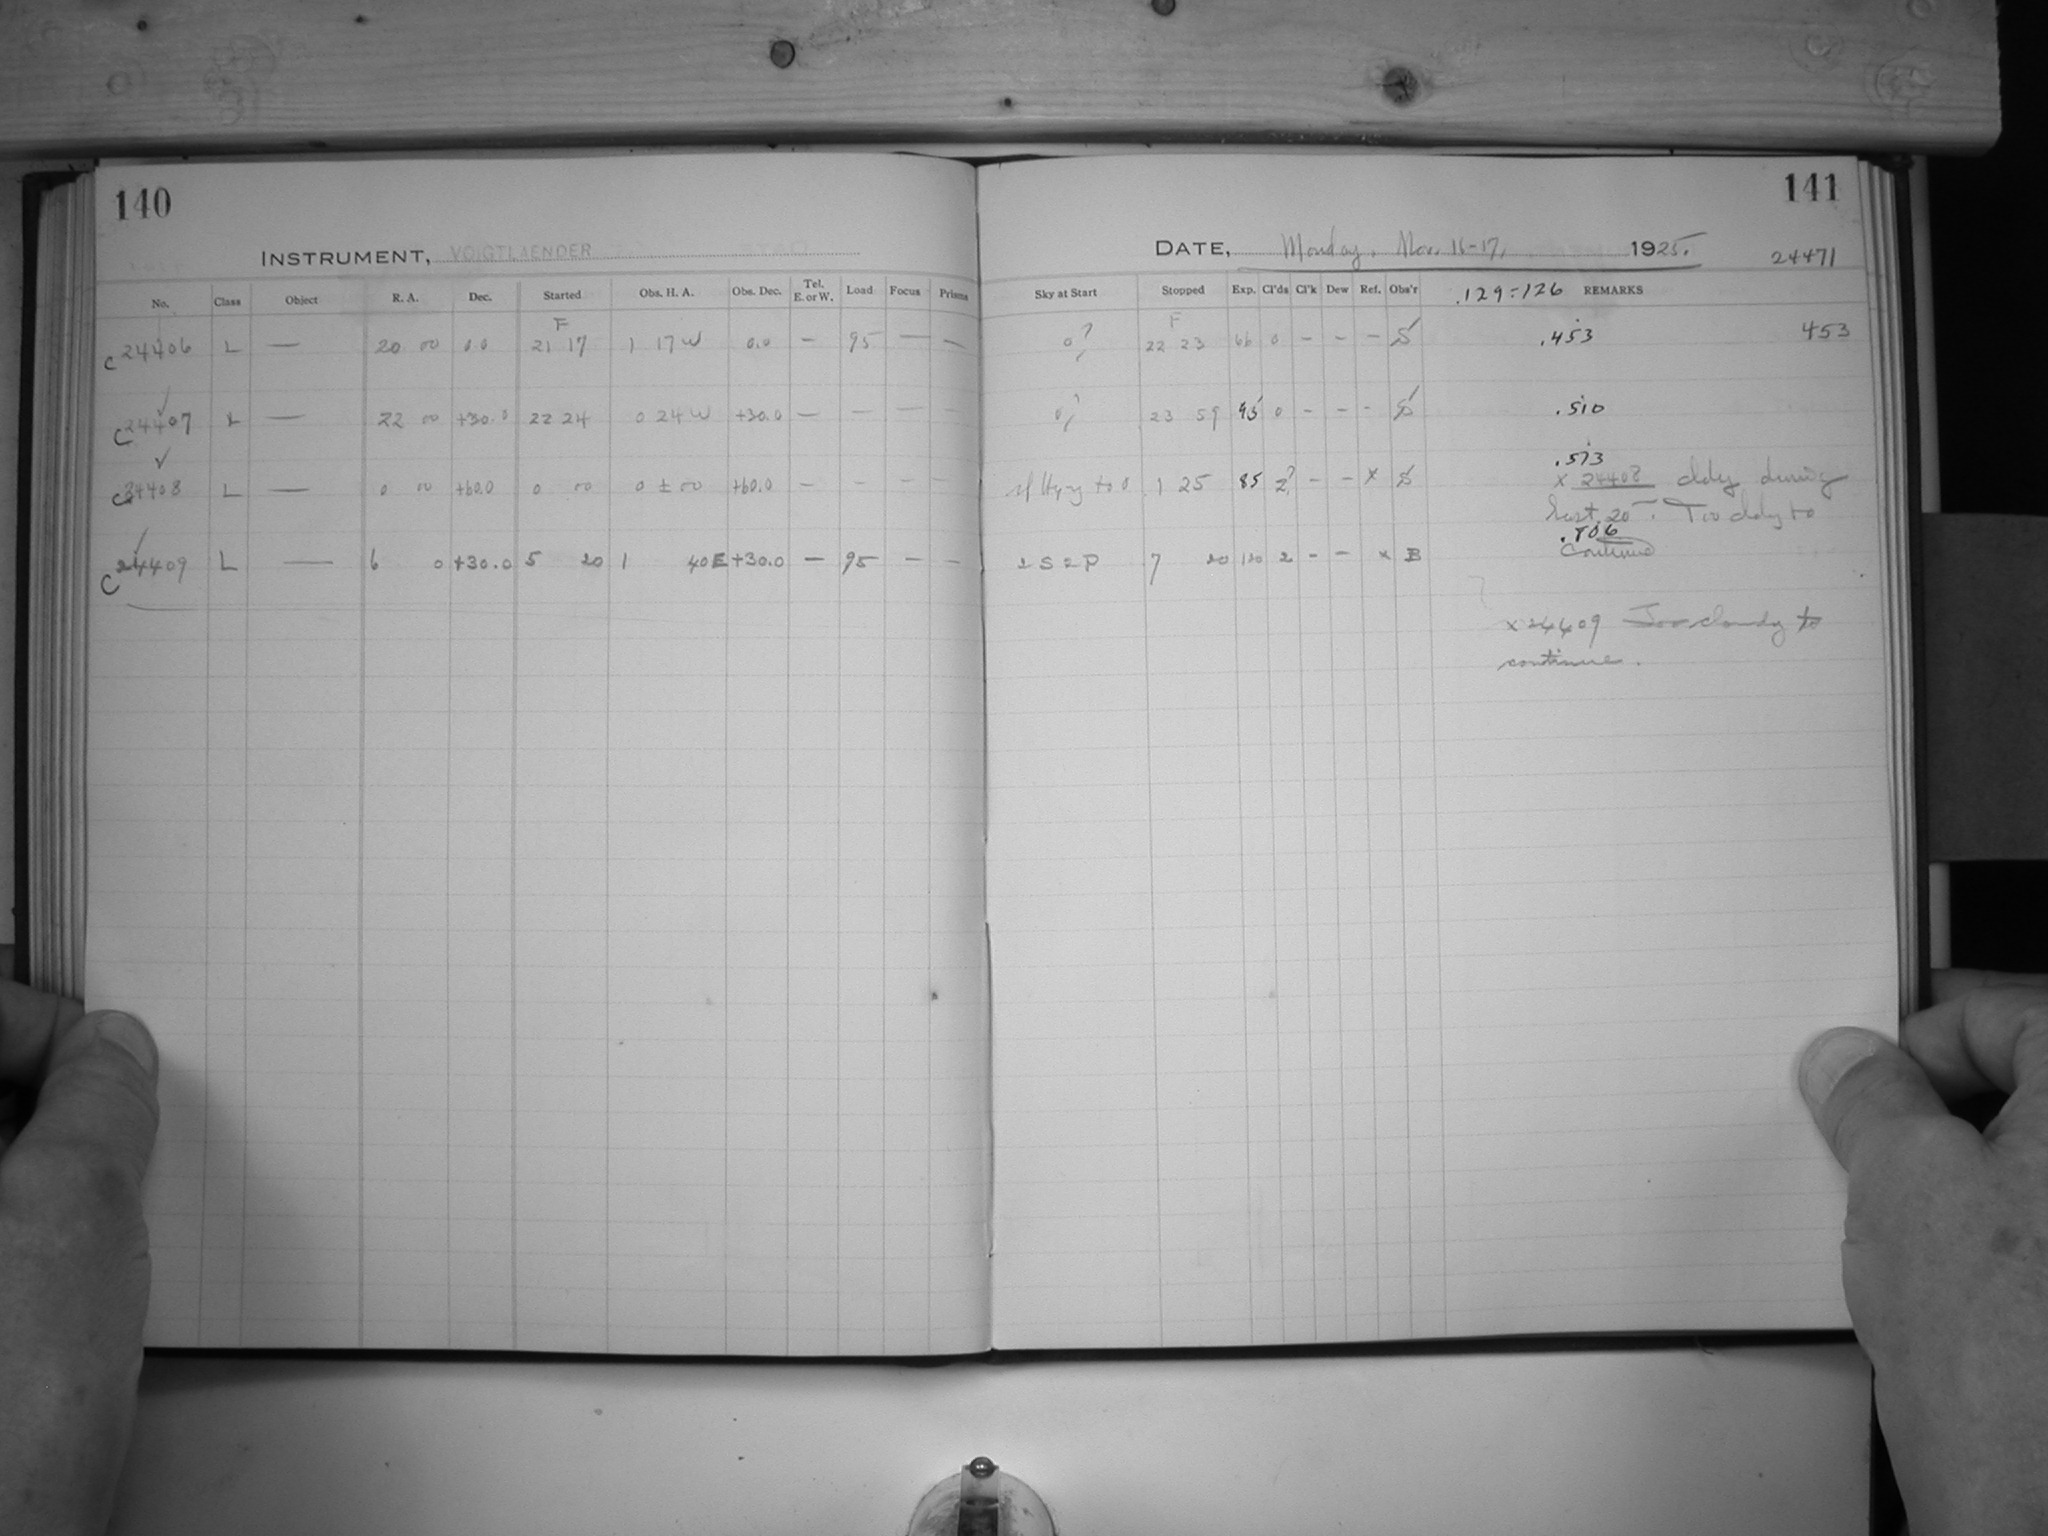 140
INSTRUMENT, VOIGTLAENDER
No. Class Object R. A. Dec. Started Obs. H. A. Obs. Dec. Tel. E. or W. Load Focus Prisms
F
C 24406 L — 20 00 0.0 21 17 1 17 W 0.0 — 95 — —
C 24407 L — 22 00 +30.0 22 24 0 24 W +30.0 — — — —
C 24408 L — 0 00 +60.0 0 00 0 ± 00 +60.0 — — — —
C 24409 L — 6 0 +30.0 5 20 1 40 E +30.0 — 95 — —
141
DATE, Monday, Nov. 16-17, 1925. 24471
Sky at Start Stopped Exp. Cl'ds Cl'k Dew Ref. Obs'r .129=126 REMARKS
F
0? 22 23 66 0 - - - S .453 453
0? 23 59 95 0 - - - S .510
.573
to 0 1 25 85 2? - - x S x 24408 cldy during
last 20 . Too cldy to
.706
2 S 2 P 7 20 120 2 - - x B continue
x 24409 Too cloudy to
continue.